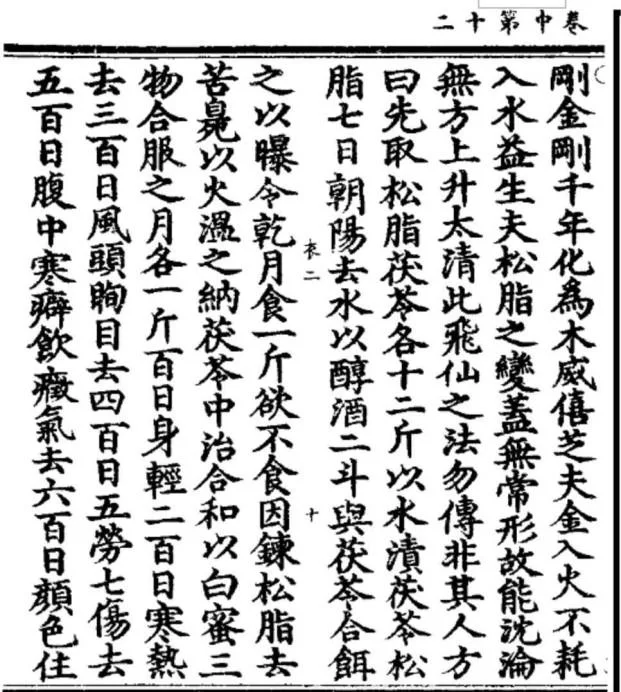 卷中第十二
剛金剛千年化爲木威僖芝夫金入火不耗
入水益生夫松脂之變蓋無常形故能沈淪
無方上升太清此飛仙之法勿傳非其人方
曰先取松脂茯苓各十二斤以水漬茯苓松
脂七日朝陽去水以醇酒二斗與茯苓合餌
二 十
之以曝令乾月食一斤欲不食因鍊松脂去
苦臰以火溫之納茯苓中治合和以白蜜三
物合服之月各一斤百日身輕二百日寒熱
去三百日風頭眴目去四百日五勞七傷去
五百日腹中寒癖飲癥氣去六百日顏色住